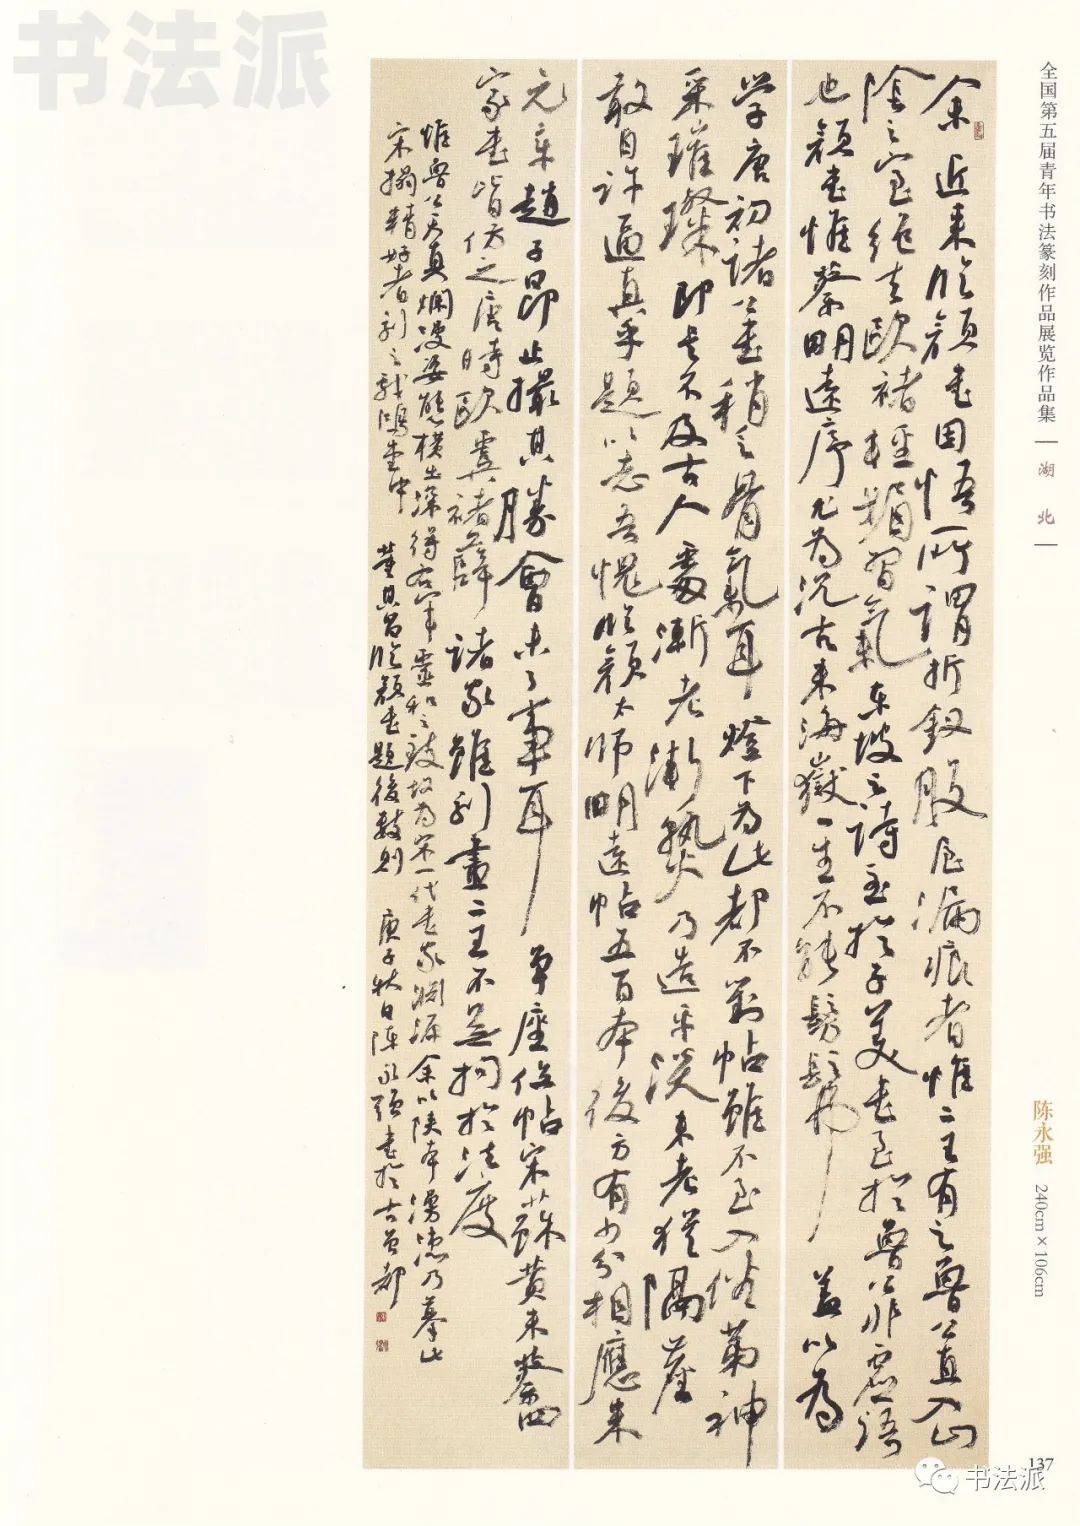 书法派
全国第五届青年书法篆刻作品展览作品集
湖 北
余近来临颜书因悟所谓折钗股屋漏痕者惟二王有之鲁公直入山
阴之室绝去欧褚轻媚习气东坡云诗至于子美书至于鲁公非虚语
也颜书惟蔡明远序尤为沉古米海嶽一生不能髣髴 盖以为
学唐初诸公书稍乏骨气耳灯下为此都不对帖虽不至入俗第神
采璀璨即是不及古人处渐老渐熟乃造平淡米老犹隔尘
敢自许逼真乎题以志吾愧临颜太师明远帖五百本后方有少分相应米
元章赵子昂止撮其胜会未了事耳 争座位帖宋苏黄米蔡四
家书皆仿之唐时欧虞褚薛诸家虽刻画二王不无拘于法度
惟鲁公天真烂漫姿态横出深得右军灵和之致故为宋一代书家渊源余以陕本漫漶乃摹此
宋搨精好者刻之戏鸿堂中 董其昌临颜书题后数则 庚子秋日陈永强书于古
陈永强
240cm×106cm
137
书法派